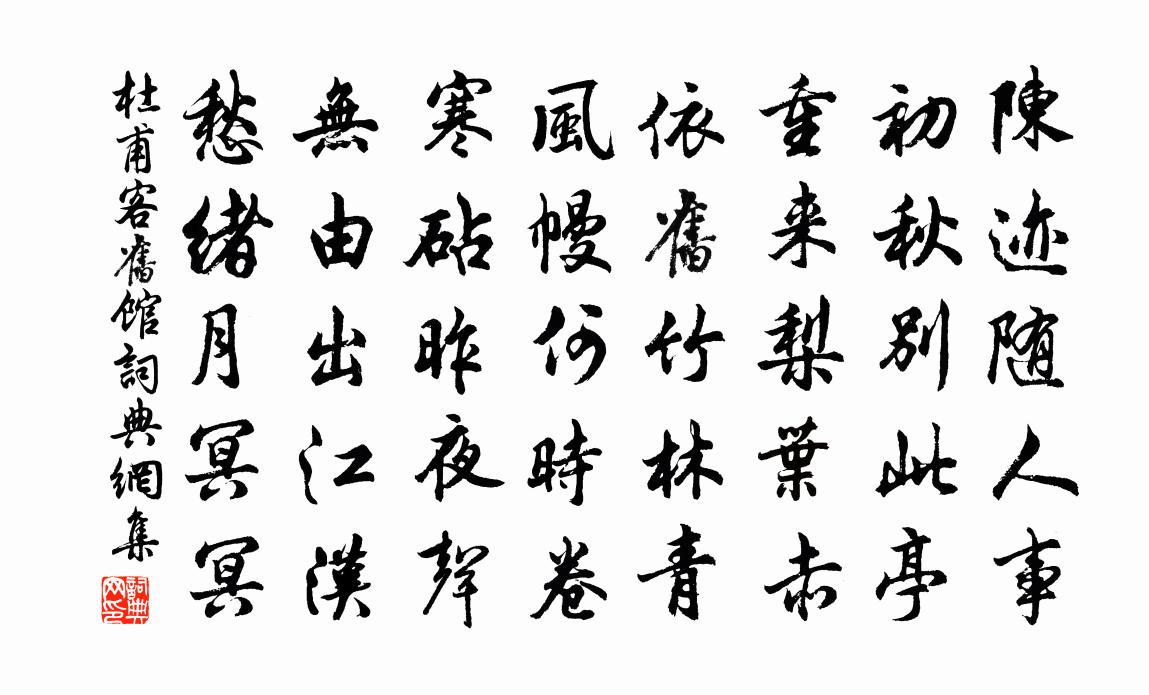 陳迹随人事
初秋别此亭
重来梨葉赤
依舊竹林青
風幔何時卷
寒砧昨夜聲
無由出江漢
愁緒月冥冥
杜甫客舊館詞典網集
詞典網印